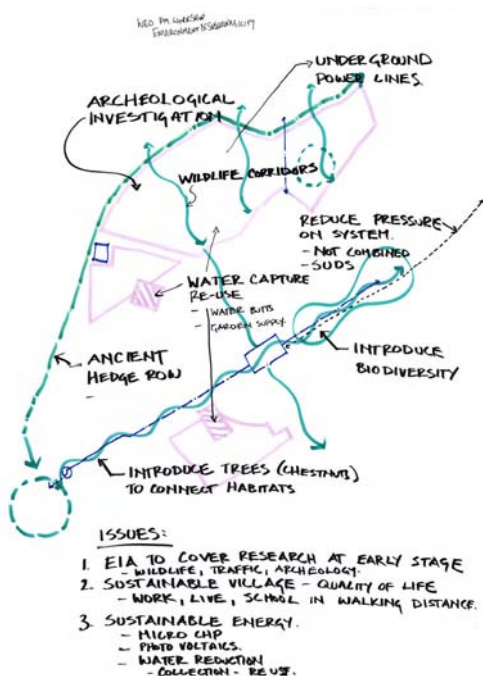 WED PM WORKSHOP
ENVIRONMENT & SUSTAINABILITY
UNDERGROUND
POWER LINES.
ARCHEOLOGICAL
INVESTIGATION
WILDLIFE CORRIDORS
REDUCE PRESSURE
ON SYSTEM.
- NOT COMBINED
- SUDS
WATER CAPTURE
RE-USE
- WATER BUTTS
- GARDEN SUPPLY.
ANCIENT
HEDGE ROW
-
INTRODUCE
BIODIVERSITY
INTRODUCE TREES (CHESTNUTS)
TO CONNECT HABITATS
ISSUES:
1. EIA TO COVER RESEARCH AT EARLY STAGE
- WILDLIFE, TRAFFIC, ARCHEOLOGY.
2. SUSTAINABLE VILLAGE - QUALITY OF LIFE
- WORK, LIVE, SCHOOL IN WALKING DISTANCE.
3. SUSTAINABLE ENERGY.
- MICRO CHP
- PHOTO VOLTAICS.
- WATER REDUCTION
- COLLECTION - RE USE.